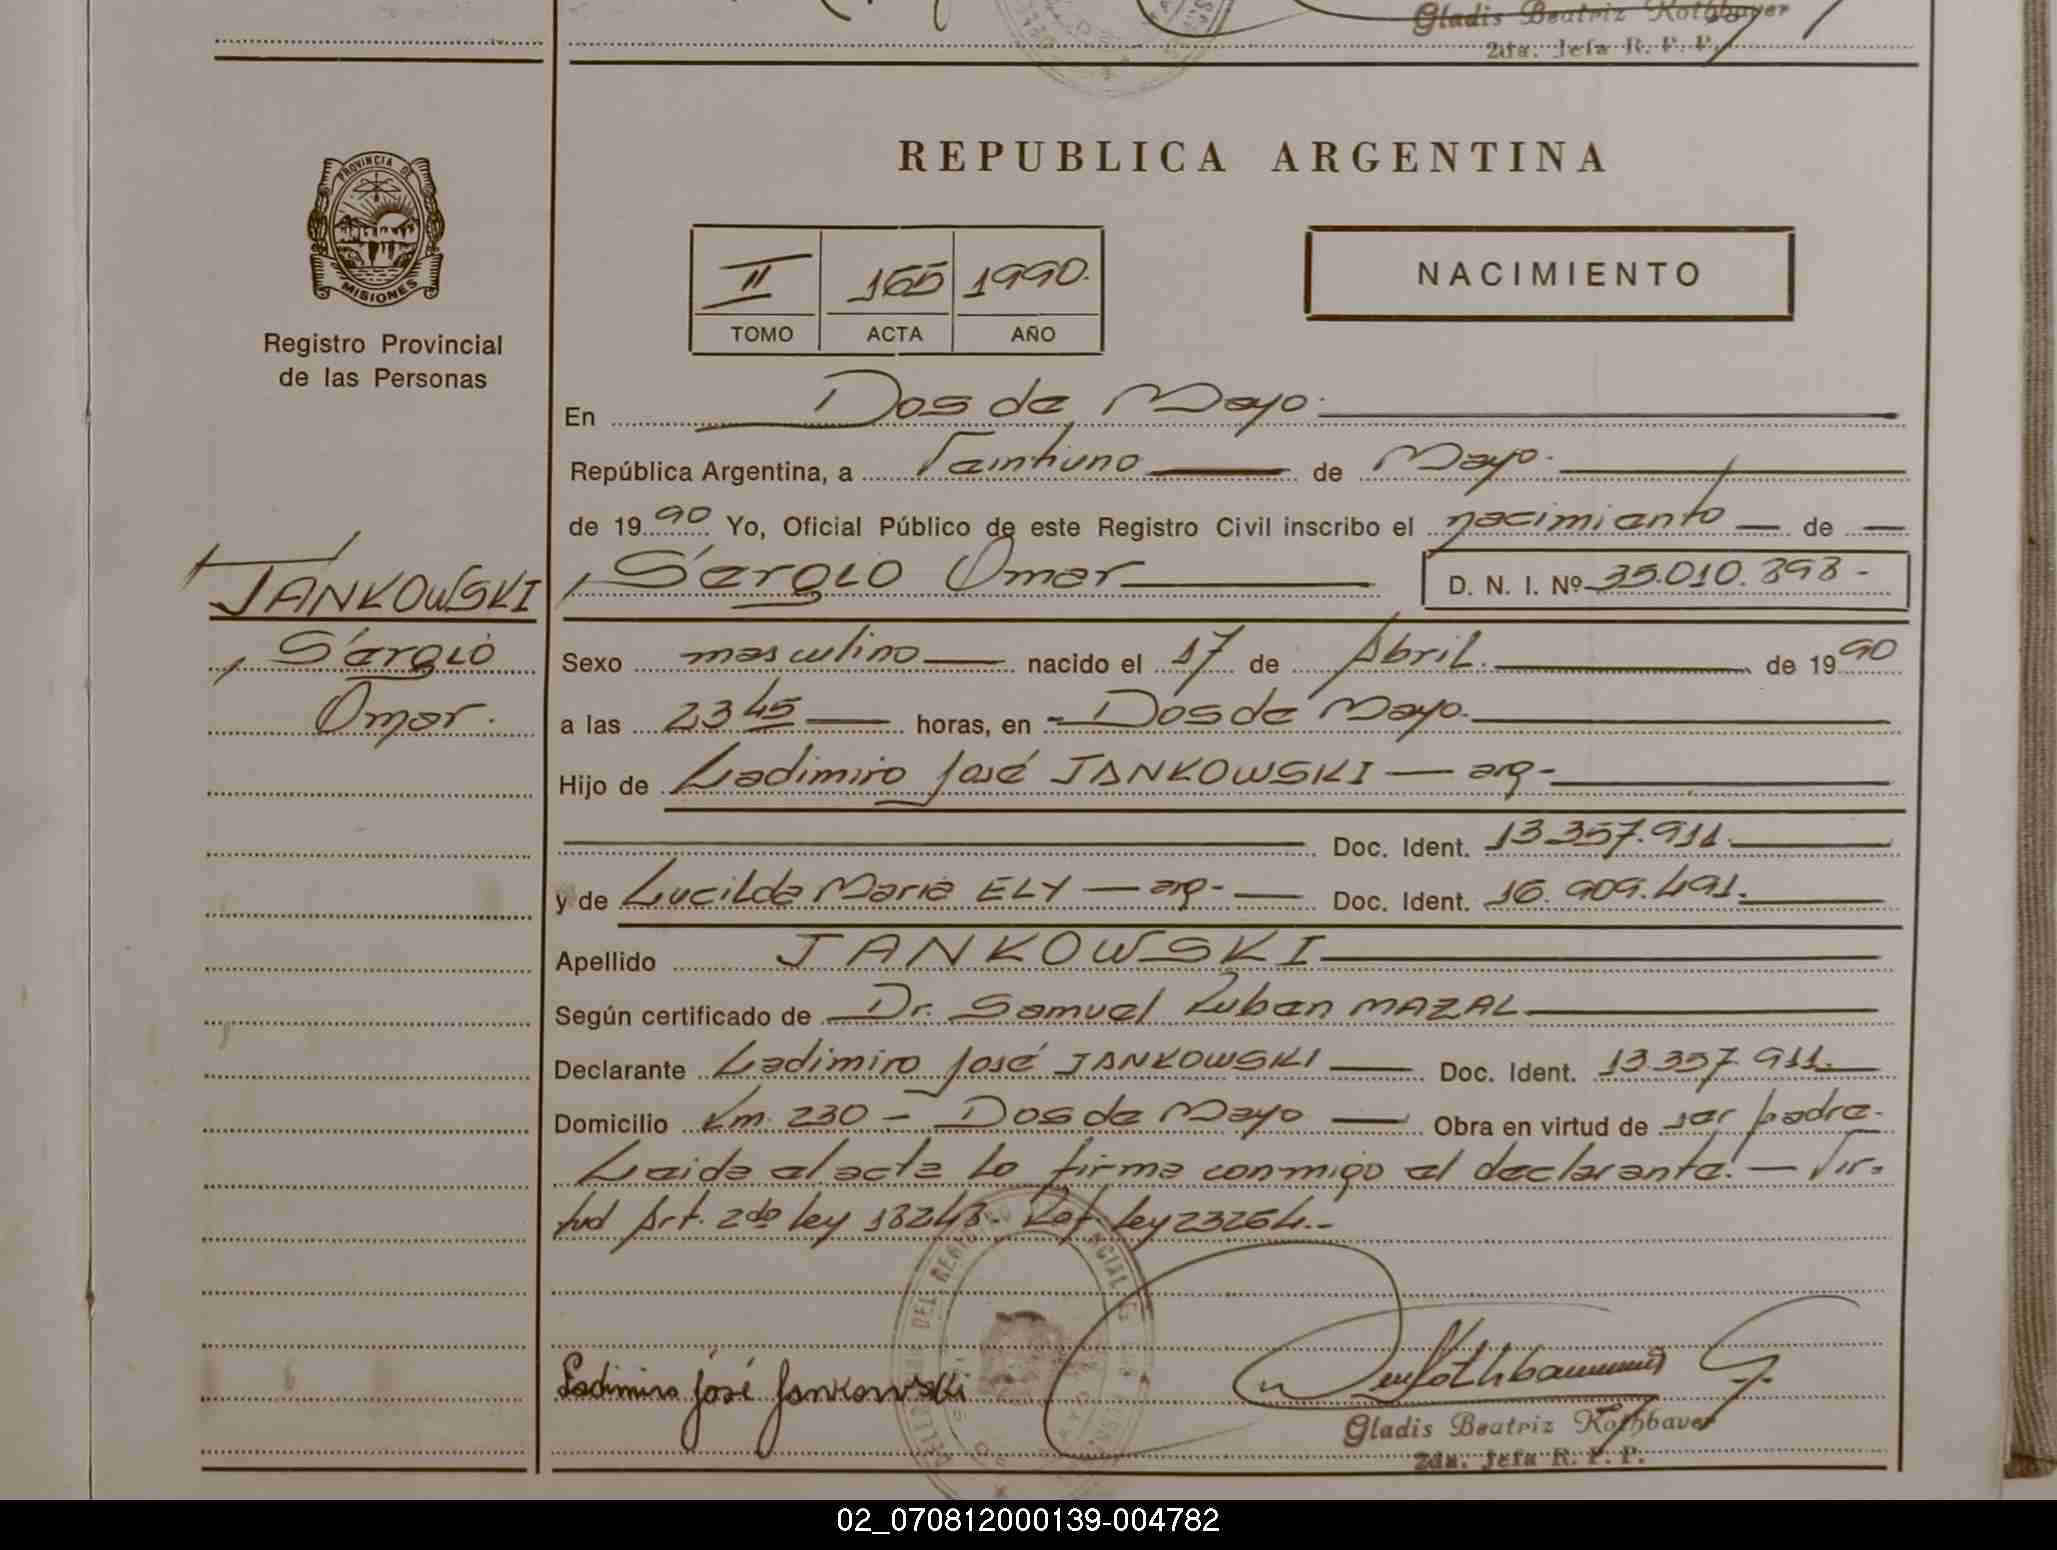 Gladis Beatriz Kothbauer
2da. Jefa R. P. P.
PROVINCIA DE
MISIONES
Registro Provincial
de las Personas
REPUBLICA ARGENTINA
II 165 1990.
TOMO ACTA AÑO
NACIMIENTO
En Dos de Mayo.
República Argentina, a Veintiuno de Mayo.
de 1990 Yo, Oficial Público de este Registro Civil inscribo el nacimiento de
JANKOWSKI, Sergio Omar D. N. I. Nº 35.010.898.-
Sergio
Omar.
Sexo masculino nacido el 17 de Abril. de 1990
a las 23 45 horas, en Dos de Mayo.
Hijo de Ladimiro José JANKOWSKI — arg-
Doc. Ident. 13.357.911.
y de Lucilda Maria ELY — arg- Doc. Ident. 16.909.491.
Apellido JANKOWSKI
Según certificado de Dr. Samuel Luban MAZAL
Declarante Ladimiro José JANKOWSKI Doc. Ident. 13.357.911.
Domicilio Km. 230 - Dos de Mayo Obra en virtud de ser padre.
Leida el acta la firma conmigo el declarante. — Vir-
tud Art. 2do ley 18248. Ref. ley 23264.-
Ladimiro José Jankowski
Gladis Beatriz Kothbauer
2da. Jefa R. P. P.
02_070812000139-004782